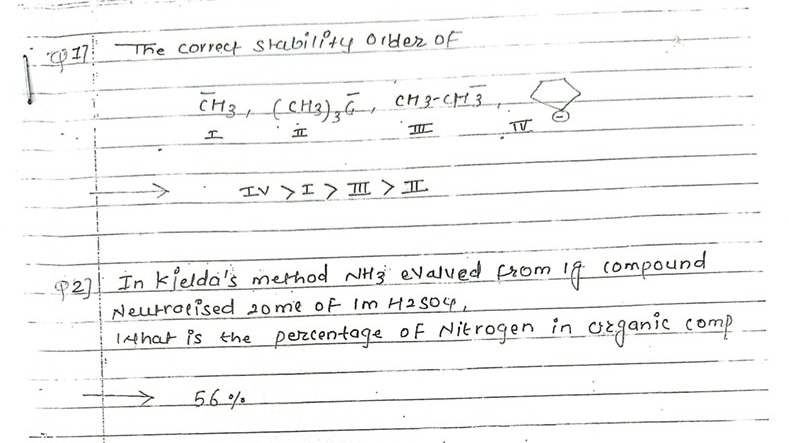 Q1] The correct stability order of
C̄H3, (CH3)3C̄, CH3-CH3̄,
I II III IV
→ IV > I > III > II
Q2] In Kjelda's method NH3 evalved from 1g compound
Neutralised 20ml of 1m H2SO4,
What is the percentage of Nitrogen in organic comp
→ 56 %